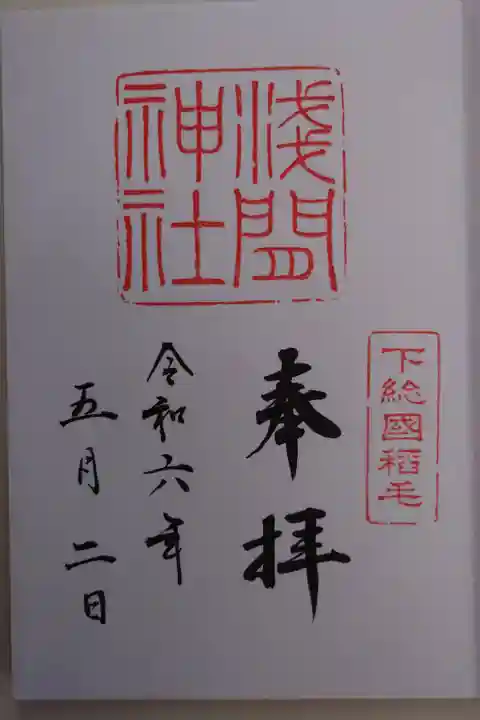 浅間
神社
下総國稻毛
奉拝
令和六年
五月二日